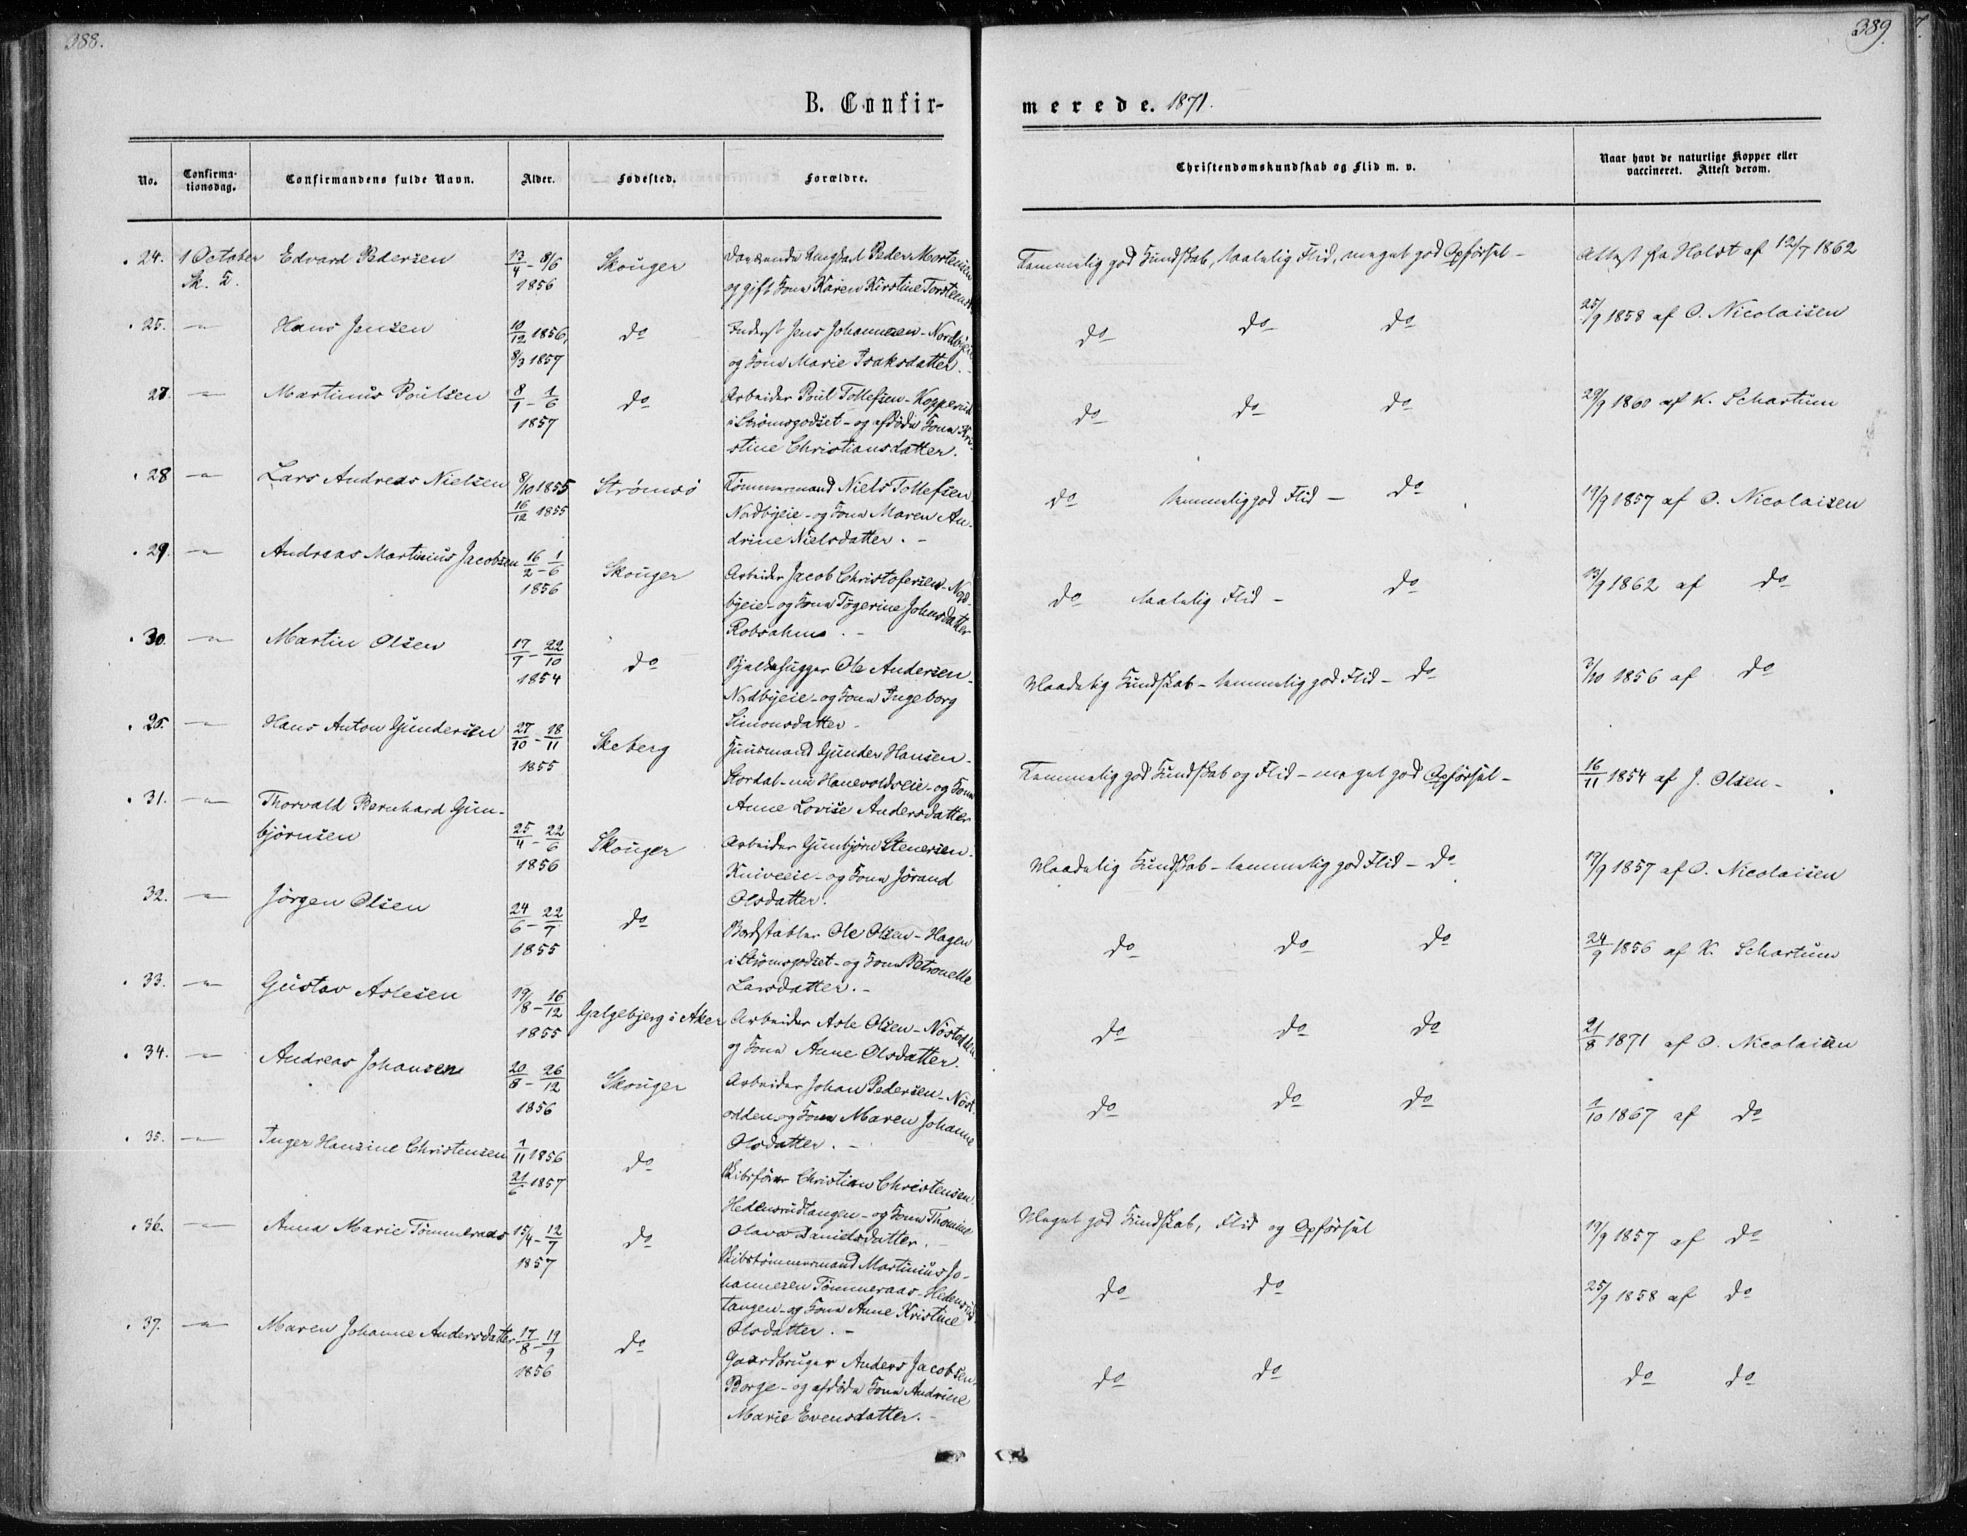 388.
389.
7.
B. Confir-
merede. 1871.
No.
Confirma-
tionsdag.
Confirmandens fulde Navn.
Alder.
Fødested.
Forældre.
Christendomskundskab og Flid m. v.
Naar havt de naturlige Kopper eller
vaccineret. Attest derom.
24. 1 October Edvard Pedersen 13/4 - 8/6 Skouger Peder Mortensen
1856 og gift Kone Karen Kirstine
Temmelig god Kundskab, Flid, meget god Opførsel - Attest fra Holst af 12/7 1862
25. -"- Hans Jensen 10/12 1856, do Inderst Jens Johannesen - Nordbyeie
8/3 1857 og Kone Marie Isaksdatter.
do do do 25/9 1858 af O. Nicolaisen
27. -"- Martinus Poulsen 8/1 - 1/6 do Arbeider Poul Tollefsen - Kopperud
1857 i Strømsgodset - og afdøde Kone Kri-
stine Christiansdatter.
do do do 29/9 1860 af K. Schartum
28 -"- Lars Andreas Nielsen 8/10 1855 Strømsø Tømmermand Niels Tollefsen
16/12 1855 Nordbyeie - og Kone Maren An-
drine Nielsdatter. -
do temmelig god Flid - do 19/9 1857 af O. Nicolaisen
29. -"- Andreas Martinius Jacobsen 16/2 - 1/6 Skouger Arbeider Jacob Christofersen - Nord-
1856 byeie - og Kone Tøgerine Johnsdatter
Robsahm. -
do Flid - do 13/9 1862 af do
30. -"- Martin Olsen 17/7 - 22/10 do Ole Andersen -
1854 Nordbyeie - og Kone Ingeborg
Simonsdatter -
Maadelig Kundskab - temmelig god Flid - do 3/10 1856 af do
-"- Hans Anton Gundersen 27/10 - 18/11 Skeberg Huusmand Gunder Hansen -
1855 Stordal - nu Hanevoldseie - og Kone
Anne Lovise Andersdatter
Temmelig god Kundskab og Flid - meget god Opførsel - 16/11 1854 af J. Olsen -
31. -"- Thorvald Bernhard Gun-
bjørnsen 25/4 - 22/6 Skouger Arbeider Gunbjørn Stenersen -
1856 Kniveeie - og Kone Jørand
Olsdatter.
Maadelig Kundskab - temmelig god Flid - do 19/9 1857 af O. Nicolaisen
32. -"- Jörgen Olsen 24/6 - 22/7 do Bordstabler Ole Olsen - Hagen
1855 i Strömsgodset - og Kone Petronelle
Larsdatter. -
do do do 24/9 1856 af K. Schartum
33. -"- Gustav Aslesen 19/8 - 16/12 Galgebjerg i Aker Arbeider Asle Olsen - Nöstodden
1855 og Kone Anne Olsdatter.
do do do 21/8 1871 af O. Nicolaisen
34. -"- Andreas Johansen 20/8 - 26/12 Skouger Arbeider Johan Pedersen - Nöst-
1856 odden og Kone Maren Johanne
Olsdatter. -
do do do 1/10 1867 af do
35. -"- Inger Hansine Christensen 1/11 1856 do Skibsfører Christian Christensen
21/6 1857 Hedensrudtangen - og Kone Thomine
Olava Danielsdatter. -
Meget god Kundskab, Flid og Opførsel 19/9 1857 af do
36. -"- Anna Marie Tömmeraas 15/4 - 12/7 do Skibstømmermand Martinius Jo-
1857 hannesen Tömmeraas - Hedensrud-
tangen - og Kone Anne Kristine
Olsdatter. -
do do 25/9 1858 af do
37. -"- Maren Johanne Andersdatter 17/8 - 19/9 do Gaardbruger Anders Jacobsen
1856 Borge - og afdøde Kone Andrine
Marie Evensdatter. -
do do do do